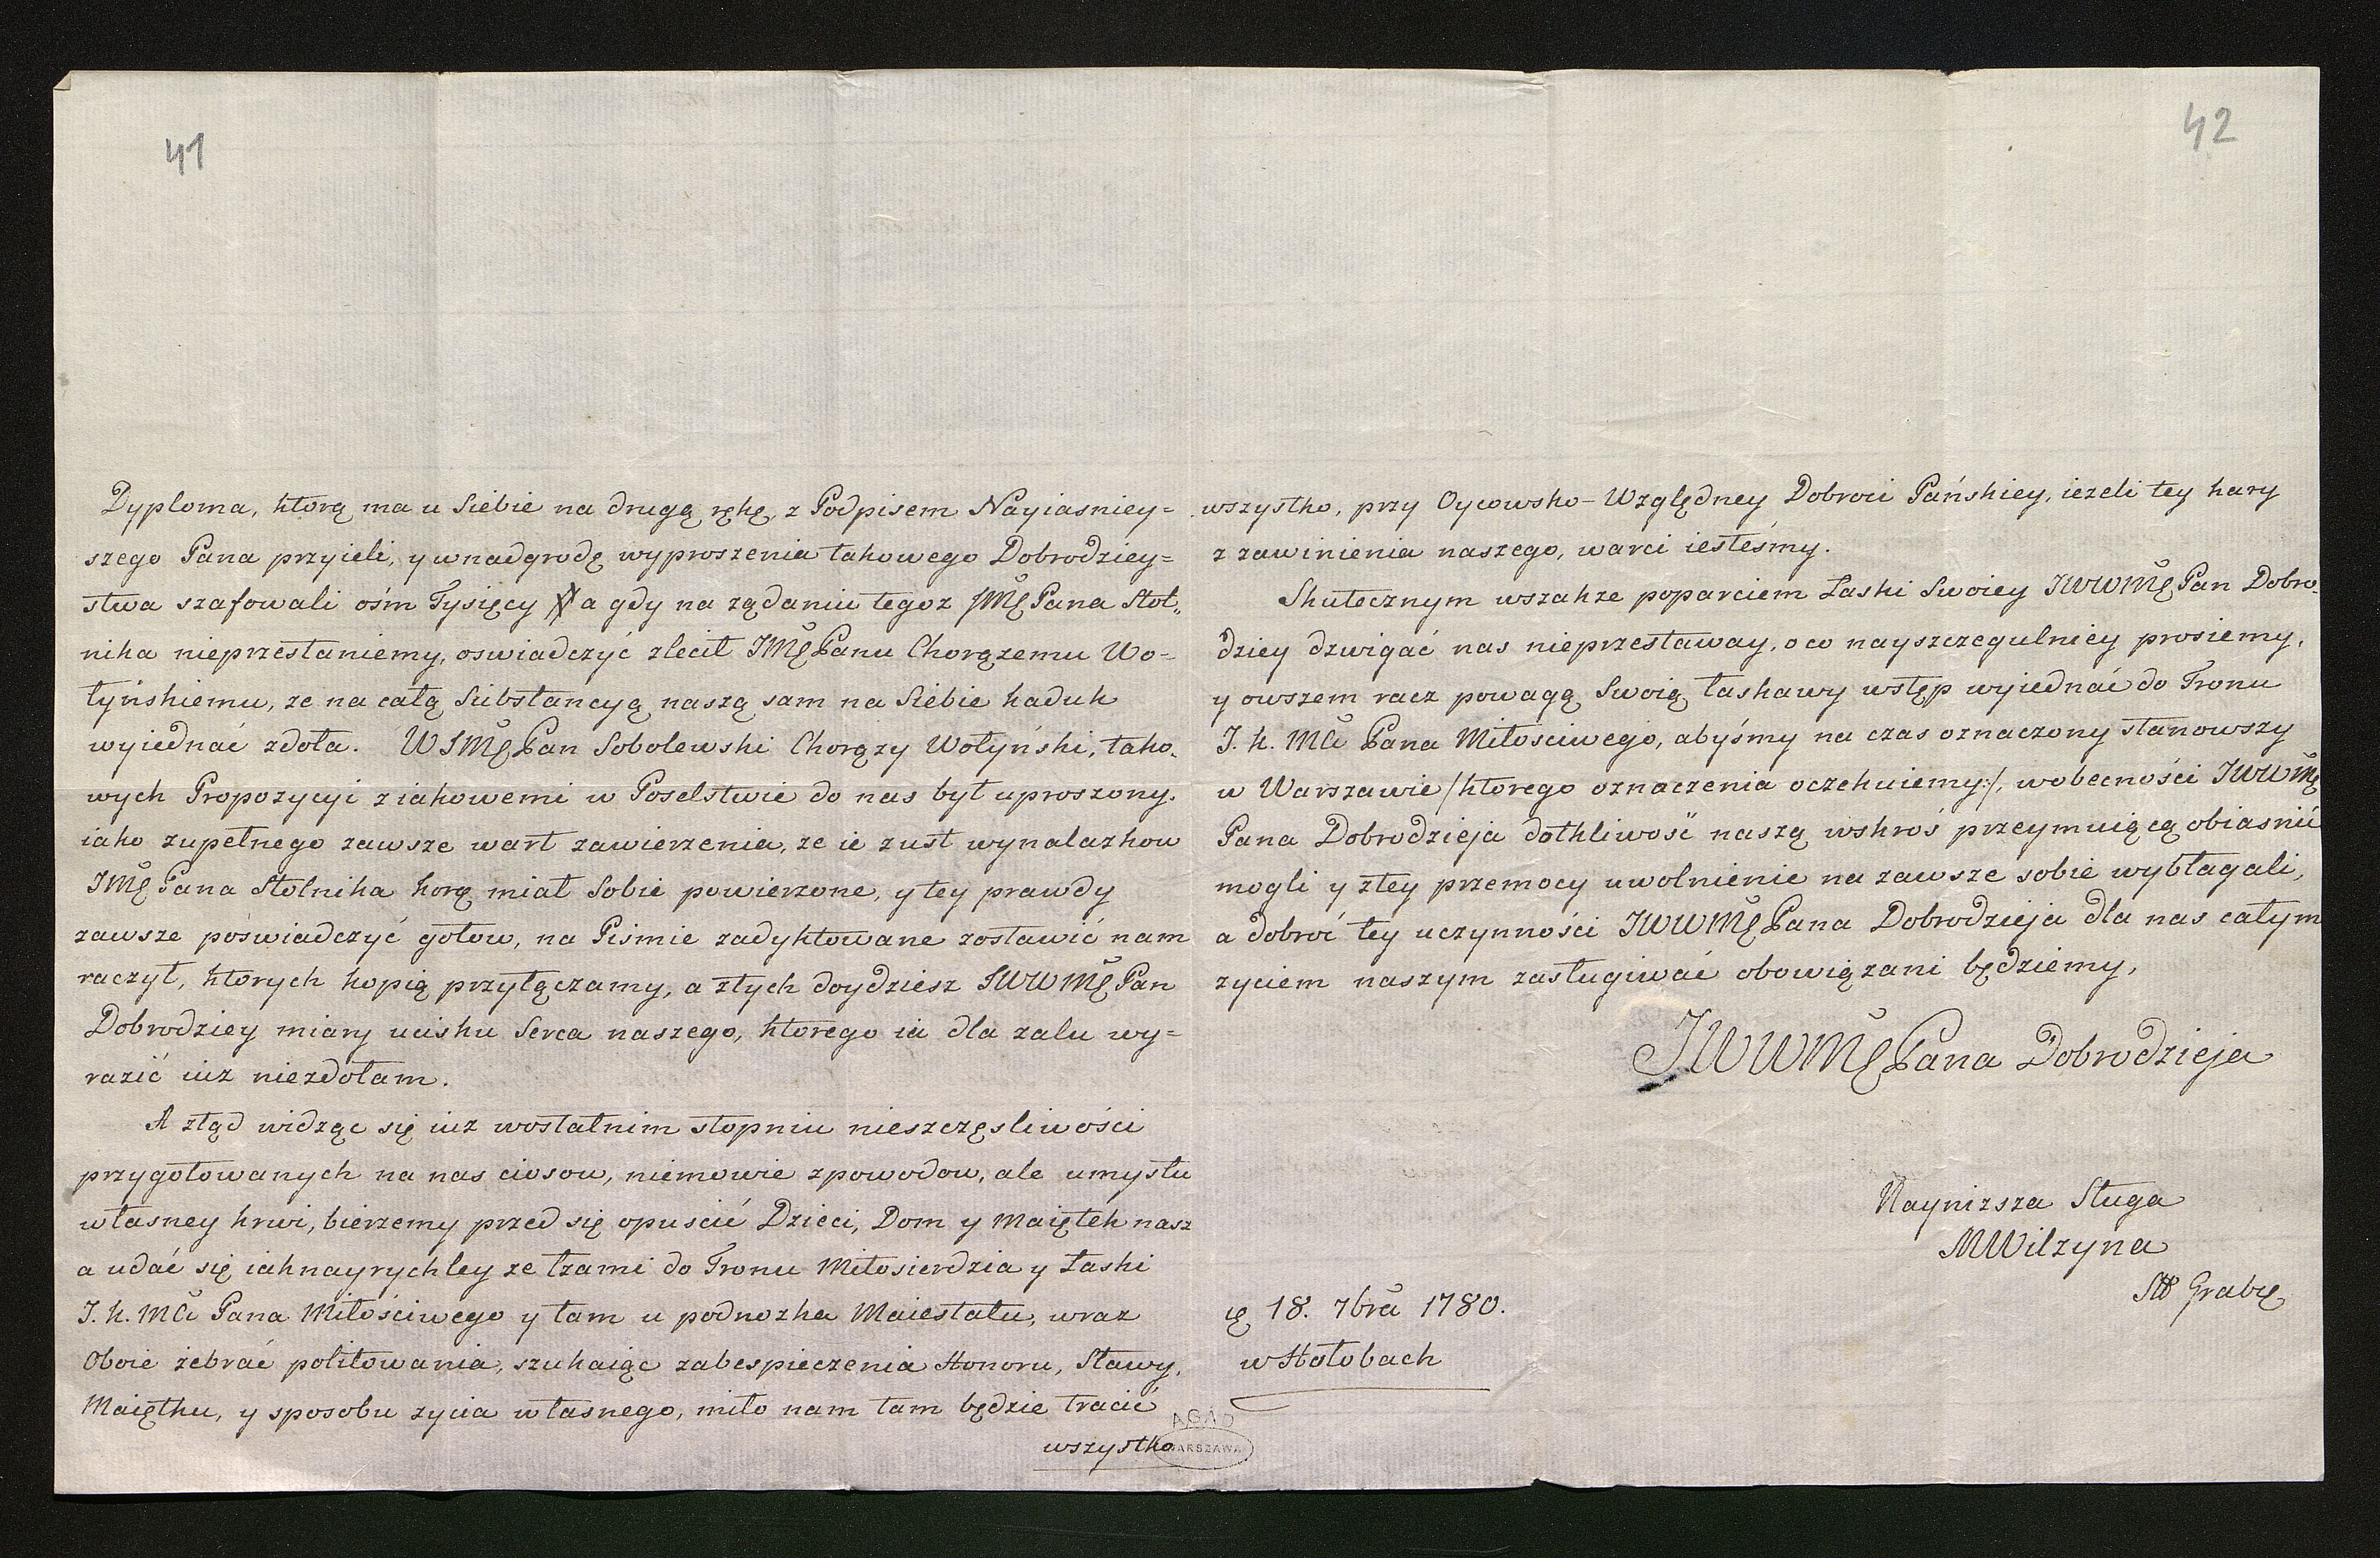 41
Dyploma, ktorą ma u Siebie na drugą rękę, z Podpisem Nayiasniey=
szego Pana przyieli, y w nadgrodę wyproszenia takowego Dobrodziey=
stwa szafowali ośm Tysięcy a gdy na ządaniu tegoz JMĘ Pana Stol=
nika nieprzestaniemy, oswiadczyć zlecił JMĘ Panu Chorązemu Wo=
łyńskiemu, ze na całą Substancyą naszą sam na Siebie kaduk
wyiednać zdoła. WJMĘ Pan Sobolewski Chorązy Wołyński, tako=
wych Propozycyi z iakowemi w Poselstwie do nas był uproszony.
iako zupełnego zawsze wart zawierzenia, ze ie zust wynalazkow
JMĘ Pana Stolnika korę miał Sobie powierzone, y tey prawdy
zawsze poświadczyć gotow, na Pismie zadyktowane zostawić nam
raczył, ktorych kopią przyłączamy, a ztych doydziesz JWWMĘ Pan
Dobrodziey miary ucisku Serca naszego, ktorego ia dla zalu wy=
razić iuz niezdołam.
A ztąd widząc się iuz wostatnim stopniu nieszczęsliwości
przygotowanych na nas ciosow, niemowie zpowodow, ale umysłu
własney krwi, bierzemy przed się opuscić Dzieci, Dom y Maiętek nasz
a udać się iaknayrychley ze łzami do Tronu Miłosierdzia y Łaski
J. K. MCi Pana Miłościwego y tam u podnozka Maiestatu, wraz
Oboie żebrać politowania, szukaiąc zabespieczenia Honoru, Sławy,
Maiętku, y sposobu zycia własnego, miło nam tam będzie tracić
wszystko
AGAD
WARSZAWA
42
wszystko, przy Oycowsko-Względney Dobroci Pańskiey, iezeli tey kary
z zawinienia naszego, warci iesteśmy.
Skutecznym wszakze poparciem Łaski Swoiey JWWMĘ Pan Dobro=
dziey dzwigać nas nieprzestaway, o co nayszczegulniey prosiemy,
y owszem racz powagą Swoią łaskawy wstęp wyjednać do Tronu
J. K. MCi Pana Miłosciwego, abyśmy na czas oznaczony stanowszy
w Warszawie /ktorego oznaczenia oczekuiemy:/, wobecności JWWMĘ
Pana Dobrodzieja dotkliwość naszą wskroś przeymuiącą obiasnić
mogli y ztey przemocy uwolnienie na zawsze sobie wybłagali,
a dobroć tey uczynności JWWMĘ Pana Dobrodzieja dla nas całym
zyciem naszym zasługiwać obowiązani będziemy,
JWWMĘ Pana Dobrodzieja
Naynizsza Sługa
MWilzyna
18. 7bra 1780.
w Hołobach